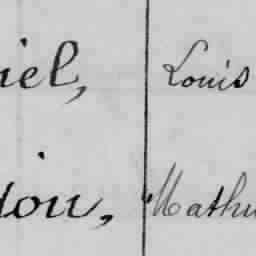 iel, Louis
ion, Mathu